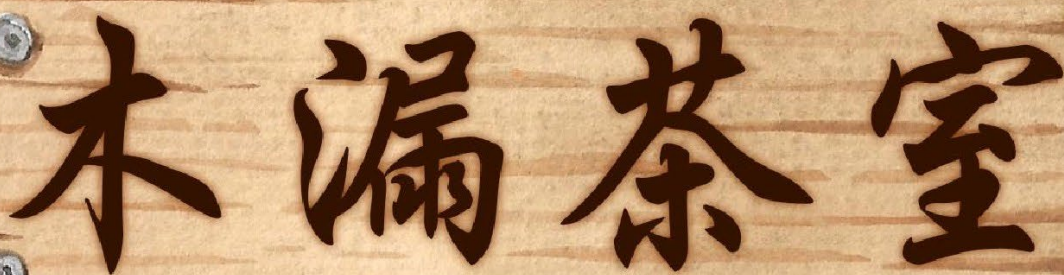 木漏茶室